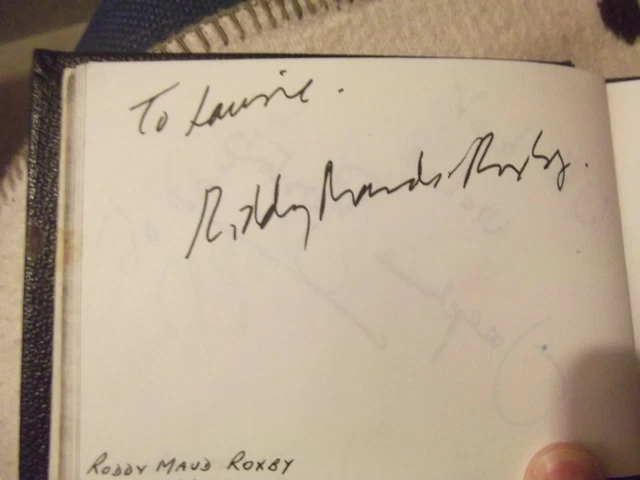 To Laurie.
Roddy Maude-Roxby.
RODDY MAUD ROXBY